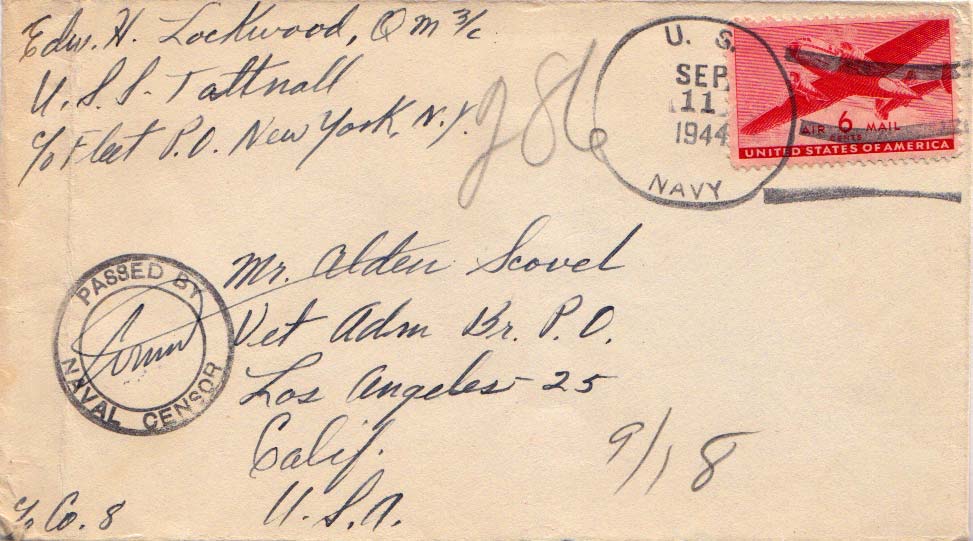 Edw. H. Lockwood, QM 3/c
U.S.S. Tattnall
c/o Fleet P.O. New York, N.Y.
286
U. S.
SEP
11
1944
NAVY
AIR 6 MAIL
CENTS
UNITED STATES OF AMERICA
PASSED BY
NAVAL CENSOR
Mr. Alden Scovel
Vet Adm Br. P.O.
Los Angeles 25
Calif.
U.S.A.
9/18
Co. 8